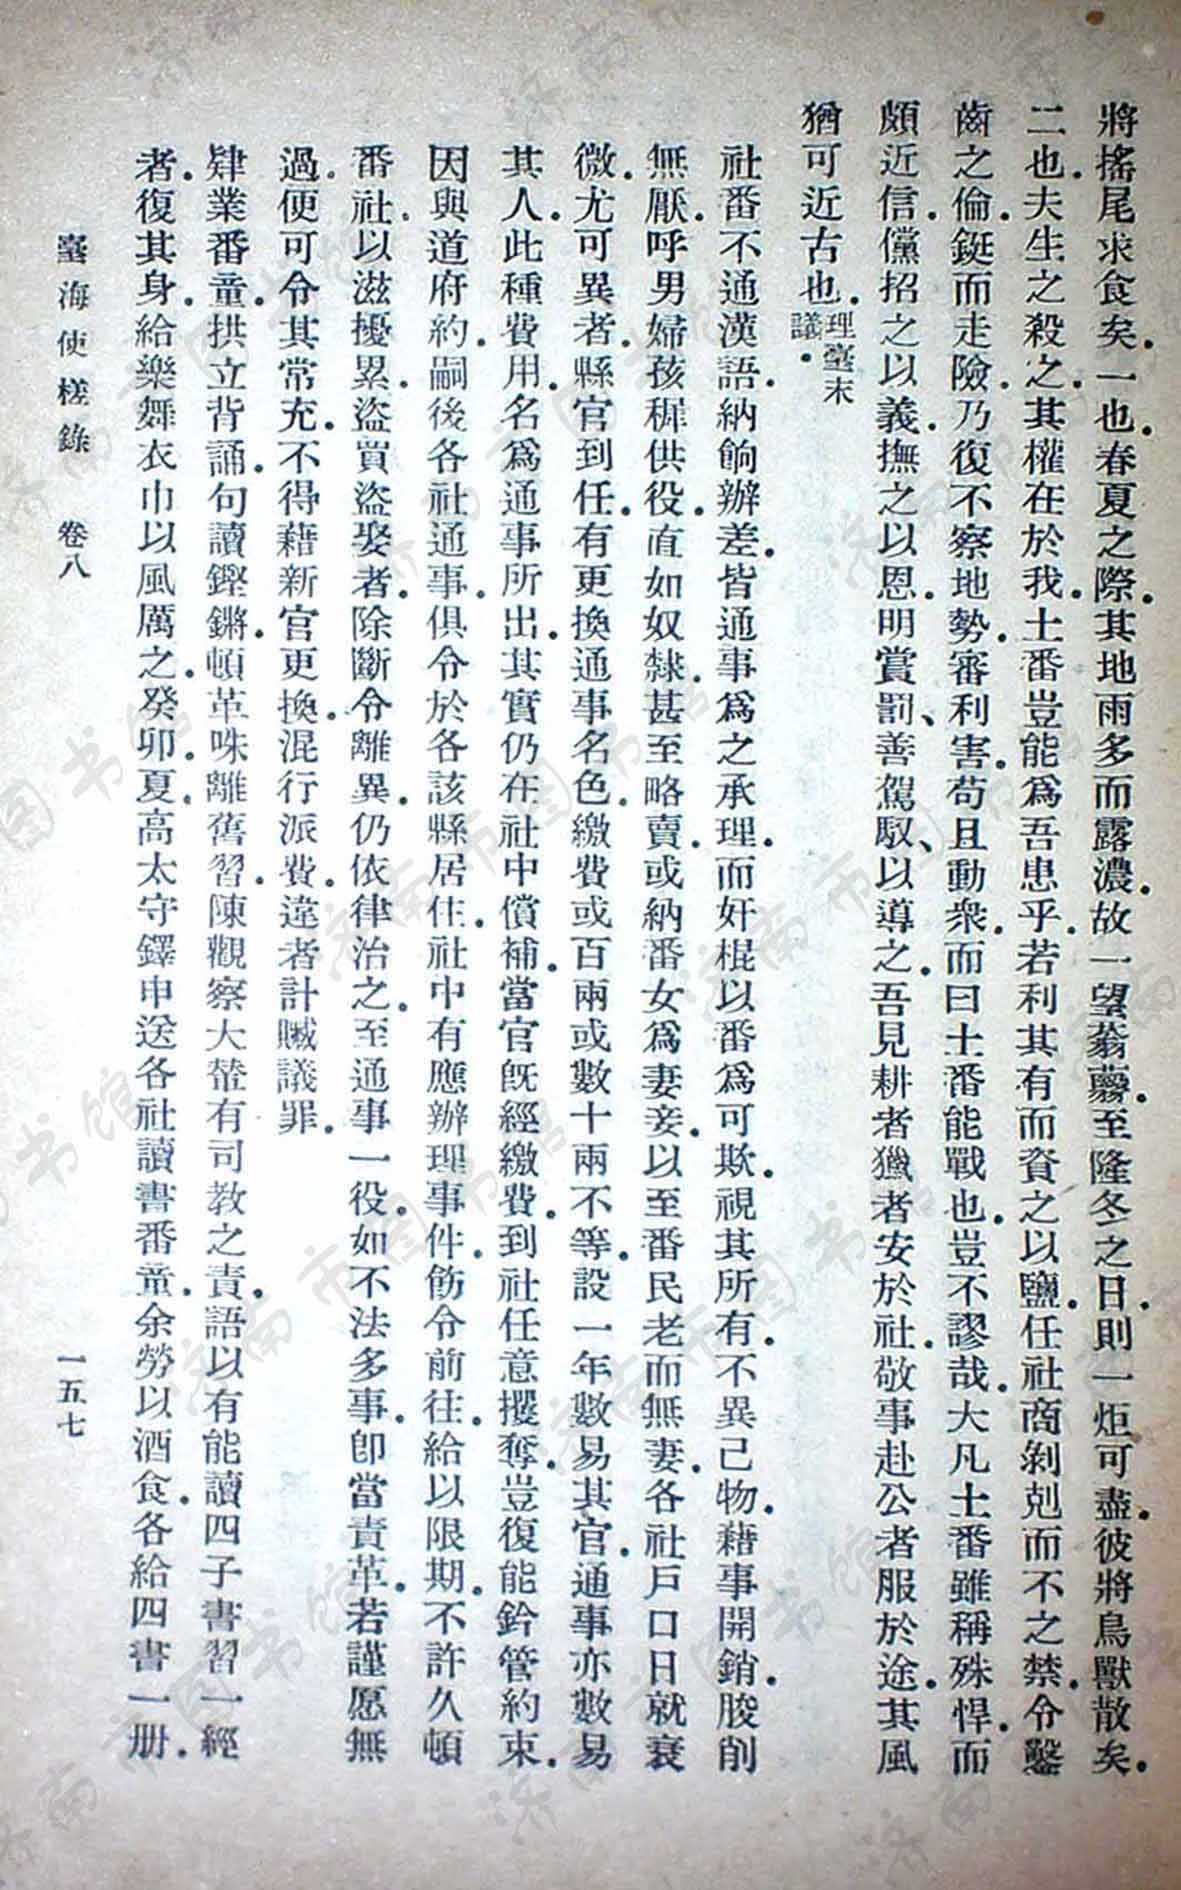 將搖尾求食矣.一也.春夏之際.其地雨多而露濃.故一望蓊蘙.至隆冬之日.則一炬可盡.彼將鳥獸散矣.
二也.夫生之殺之.其權在於我.土番豈能為吾患乎.若利其有而資之以鹽.任社商剝剋而不之禁.令鑿
齒之倫.鋌而走險.乃復不察地勢.審利害.苟且動衆.而曰土番能戰也.豈不謬哉.大凡土番雖稱殊悍.而
頗近信.儻招之以義.撫之以恩.明賞罰、善駕馭、以導之.吾見耕者獵者安於社.敬事赴公者服於途.其風
猶可近古也.理臺末議.
社番不通漢語.納餉辦差.皆通事為之承理.而奸棍以番為可欺.視其所有.不異己物.藉事開銷.朘削
無厭.呼男婦孩穉供役.直如奴隸.甚至略賣.或納番女為妻妾.以至番民老而無妻.各社戶口日就衰
微.尤可異者.縣官到任.有更換通事名色.繳費或百兩或數十兩不等.設一年數易其官.通事亦數易
其人.此種費用.名為通事所出.其實仍在社中償補.當官旣經繳費.到社任意攫奪.豈復能鈐管約束.
因與道府約.嗣後各社通事.俱令於各該縣居住.社中有應辦理事件.飭令前往.給以限期.不許久頓
番社.以滋擾累.盜買盜娶者.除斷令離異.仍依律治之.至通事一役.如不法多事.卽當責革.若謹愿無
過.便可令其常充.不得藉新官更換.混行派費.違者計贓議罪.
肄業番童.拱立背誦.句讀鏗鏘.頓革咮離舊習.陳觀察大輦有司教之責.語以有能讀四子書習一經
者.復其身.給樂舞衣巾以風厲之.癸卯夏.高太守鐸申送各社讀書番童.余勞以酒食.各給四書一册.
臺海使槎錄　卷八　一五七